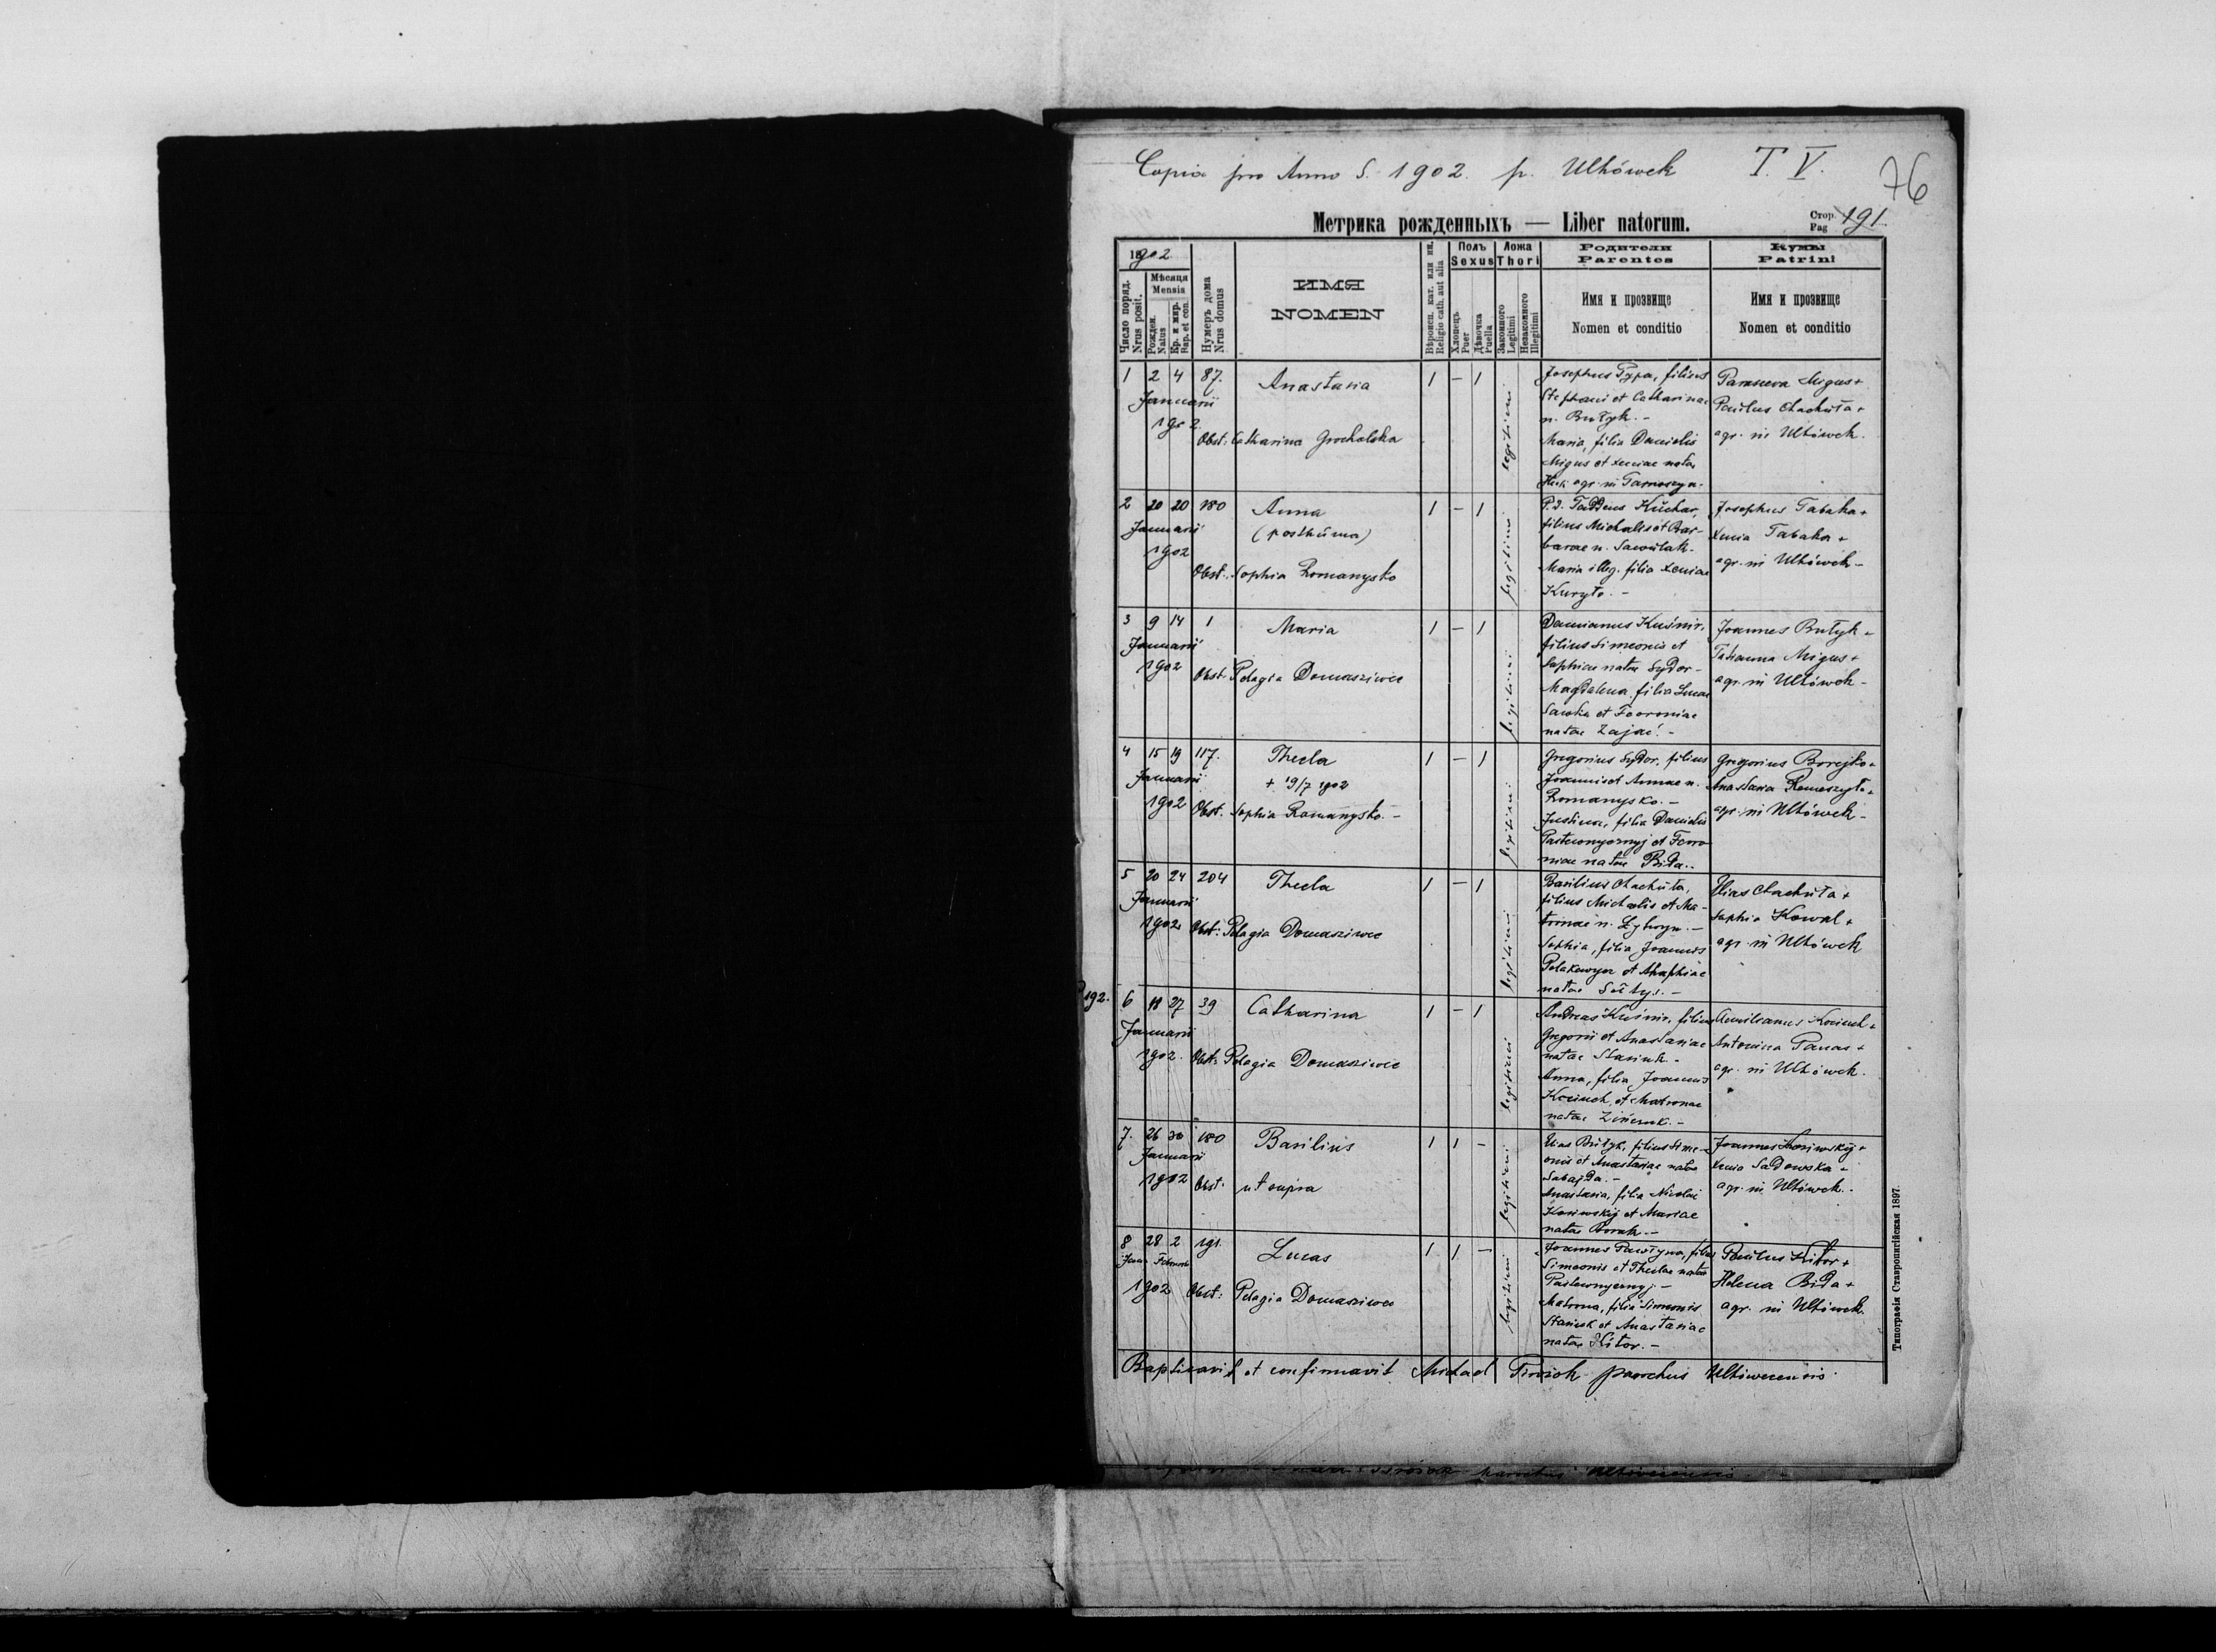 Copia pro Anno S. 1902. p. Uhówek T. V.
76
Метрика рожденныхъ — Liber natorum.
Стор. Pag 191.
1902
Число поряд. Nrus posit.
Мѣсяця Mensis
Рожден. Natus
Кр. и мир. Bap. et con.
Нумеръ дома Nrus domus
ИМЯ
NOMEN
Вѣроисп. кат. или ин. Religio cath. aut alia
Полъ
Sexus
Хлопецъ Puer
Дѣвочка Puella
Ложа
Thori
Законного Legitimi
Незаконного Illegitimi
Родители
Parentes
Имя и прозвище
Nomen et conditio
Кумы
Patrini
Имя и прозвище
Nomen et conditio
1 2 4 87. Anastasia 1 – 1 legitimi
Januarii
1902
Obst: Catharina Grocholska
Josephus Pypa, filius
Stephani et Catharinae
n. Brutyk. –
Maria, filia Danielis
Migus et Xeniae natae
agr. in Tarnoszyn.
Parasceva Migus +
Paulus Chachuła +
agr. in Uhówek.
2 20 20 180 Anna 1 – 1 legitimi
Januarii (posthuma)
1902
Obst: Sophia Romanysko
P.d. Taddeus Kuchar,
filius Michaelis et Bar-
barae n. Sawulak.
Maria illeg. filia Xeniae
Kuryło. –
Josephus Tabaka +
Xenia Tabaka +
agr. in Uhówek –
3 9 14 1 Maria 1 – 1 legitimi
Januarii
1902
Obst: Pelagia Domasziwec
Damianus Kuśnir,
filius Simeonis et
Sophiae natae Sydor –
Magdalena, filia Lucae
Sawka et Fevroniae
natae Zajac. –
Joannes Brutyk +
Tatianna Migus +
agr. in Uhówek –
4 15 19 117. Thecla 1 – 1 legitimi
Januarii + 19/7 1902
1902 Obst. Sophia Romanysko. –
Gregorius Sydor, filius
Joannis et Annae n.
Romanysko. –
Justina, filia Danielis
Pasternyczyj et Fevro
niae natae Bida. –
Gregorius Borejko +
Anastasia Remeszyło +
agr. in Uhówek –
5 20 24 204 Thecla 1 – 1 legitimi
Januarii
1902 Obst: Pelagia Domasziwec
Basilius Chachuła,
filius Michaelis et Ma-
tronae n. –
Sophia, filia Joannis
Polakewycz et Ahaphiae
natae Sołtys. –
Elias Chachuła +
Sophia Kowal +
agr. in Uhówek
192.
6 18 27 39 Catharina 1 – 1 legitimi
Januarii
1902. Obst: Pelagia Domasziwec
Andreas Kuśnir, filius
Gregorii et Anastasiae
natae Stasiuk. –
Anna, filia Joannis
et Matronae
natae –
Aemilianus +
Antonina Panas +
agr. in Uhówek.
7. 26 30 180 Basilius 1 1 – legitimi
Januarii
1902 Obst. ut supra
Elias Brutyk, filius Sime-
onis et Anastasiae natae
Sabajda. –
Anastasia, filia Nicolai
Kosiwskij et Mariae
natae –
Joannes Kosiwskij +
Xenia Sadowska +
agr. in Uhówek. –
8 28 2 191. Lucas 1 1 – legitimi
Januar Februarii
1902 Obst: Pelagia Domasziwec
Joannes Pawłyna, filius
Simeonis et Theclae natae
Pasternyczyj –
Matrona, filia Simeonis
Stasiuk et Anastasiae
natae Kitor. –
Paulus Kitor +
Helena Bida +
agr. in Uhówek.
Baptisavit et confirmavit Michael Pirożok parochus Uhówecensis.
Типографія Ставропигійская 1897.